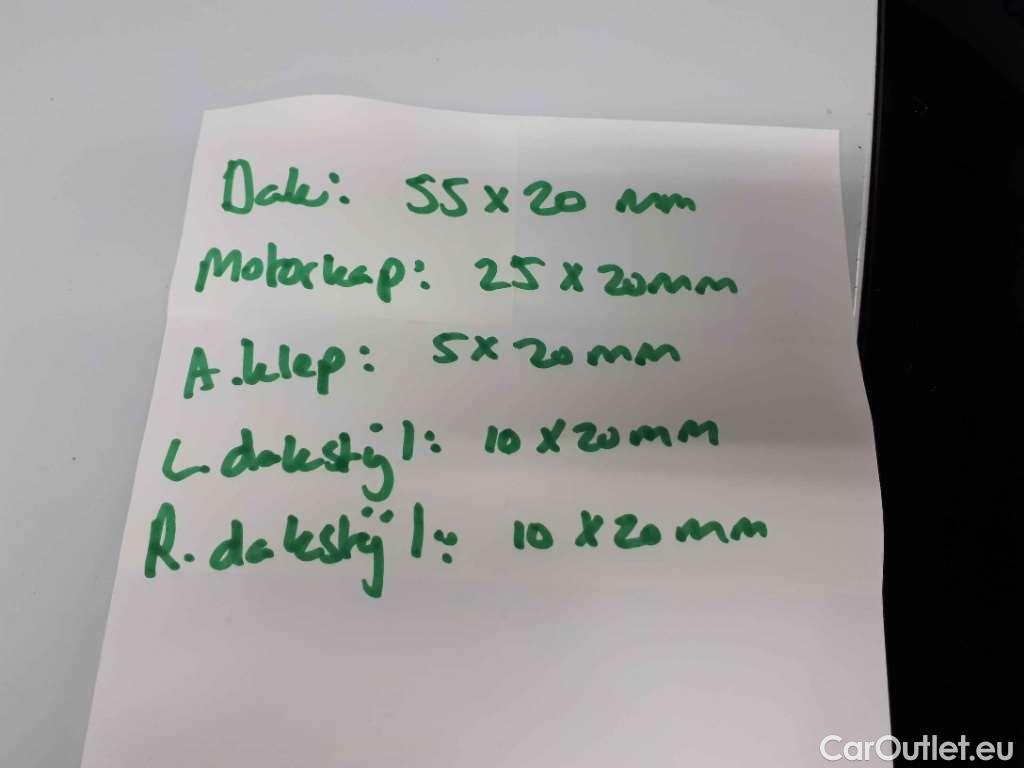 Dak: 55 x 20 mm
Motorkap: 25 x 20mm
A.klep: 5 x 20mm
L. dakstijl: 10 x 20mm
R. dakstijl: 10 x 20mm
CarOutlet.eu